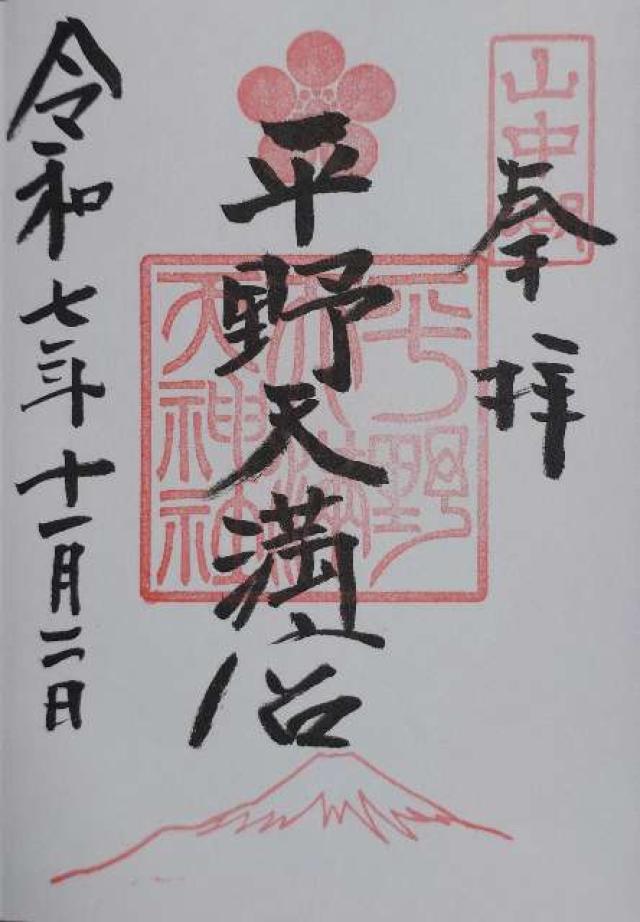 奉拝
山中湖
平野天満宮
平野天満天神社
令和七年十一月二日